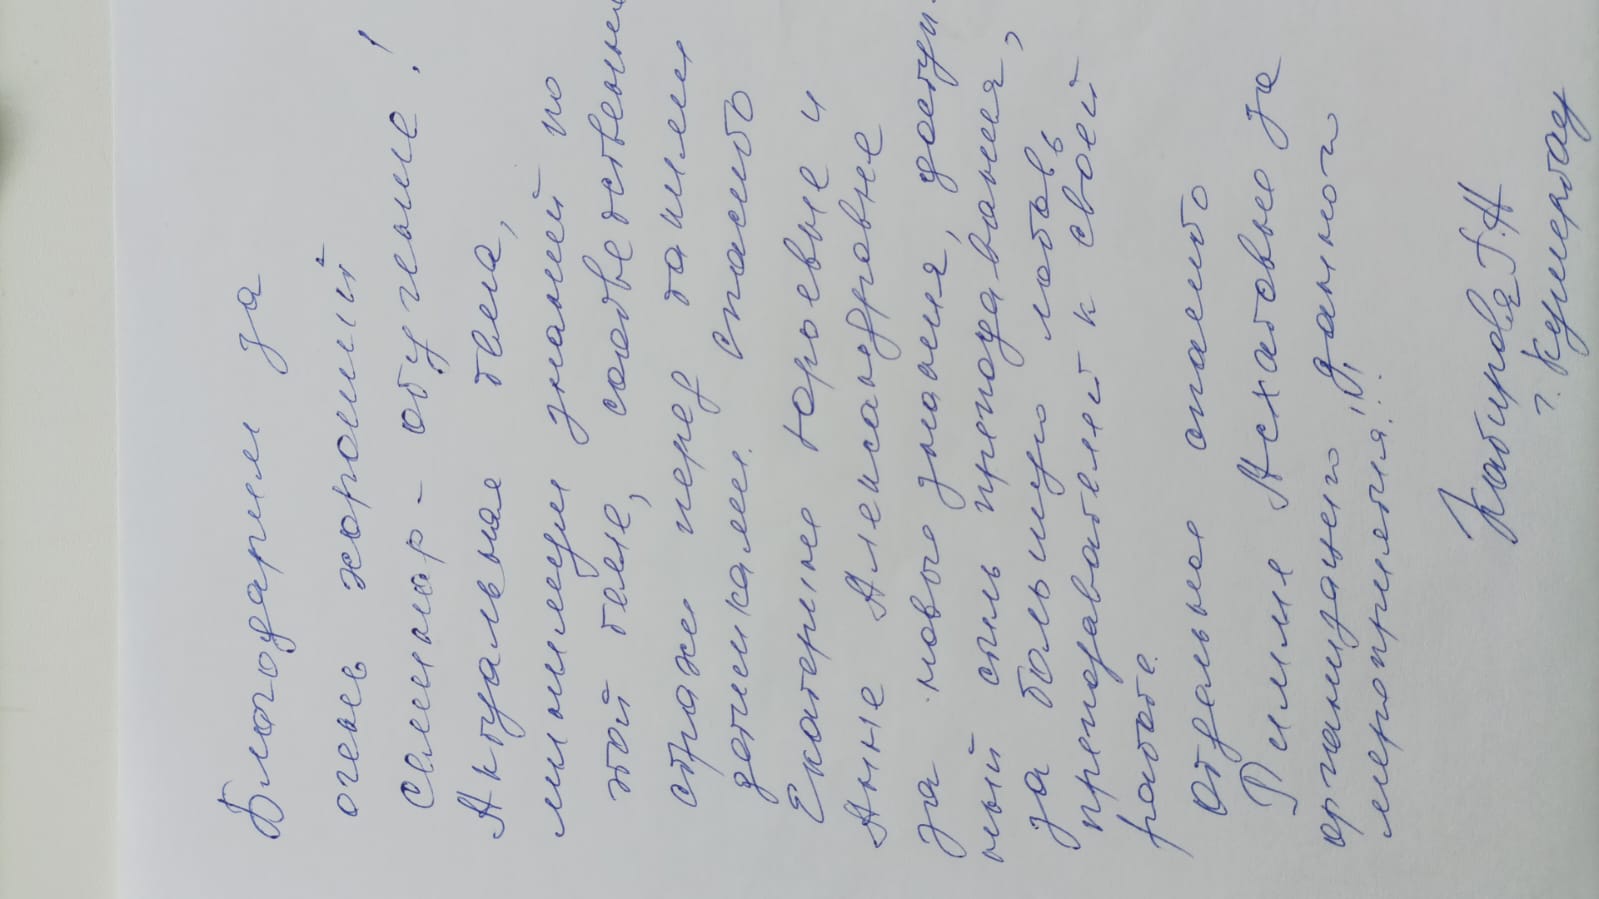 Благодарим за
очень хороший
семинар - обучение!
Актуальная тема,
минимум знаний по
этой теме, соответственно
страх перед такими
детишками. Спасибо
Екатерине Юрьевне и
Анне Александровне
за новые знания, доступ-
ный стиль преподавания,
за большую любовь
преподавателей к своей
работе.
Отдельное спасибо
Римме Асхатовне за
организацию данного
мероприятия!
Кабирова Г.Н
г. Кумертау